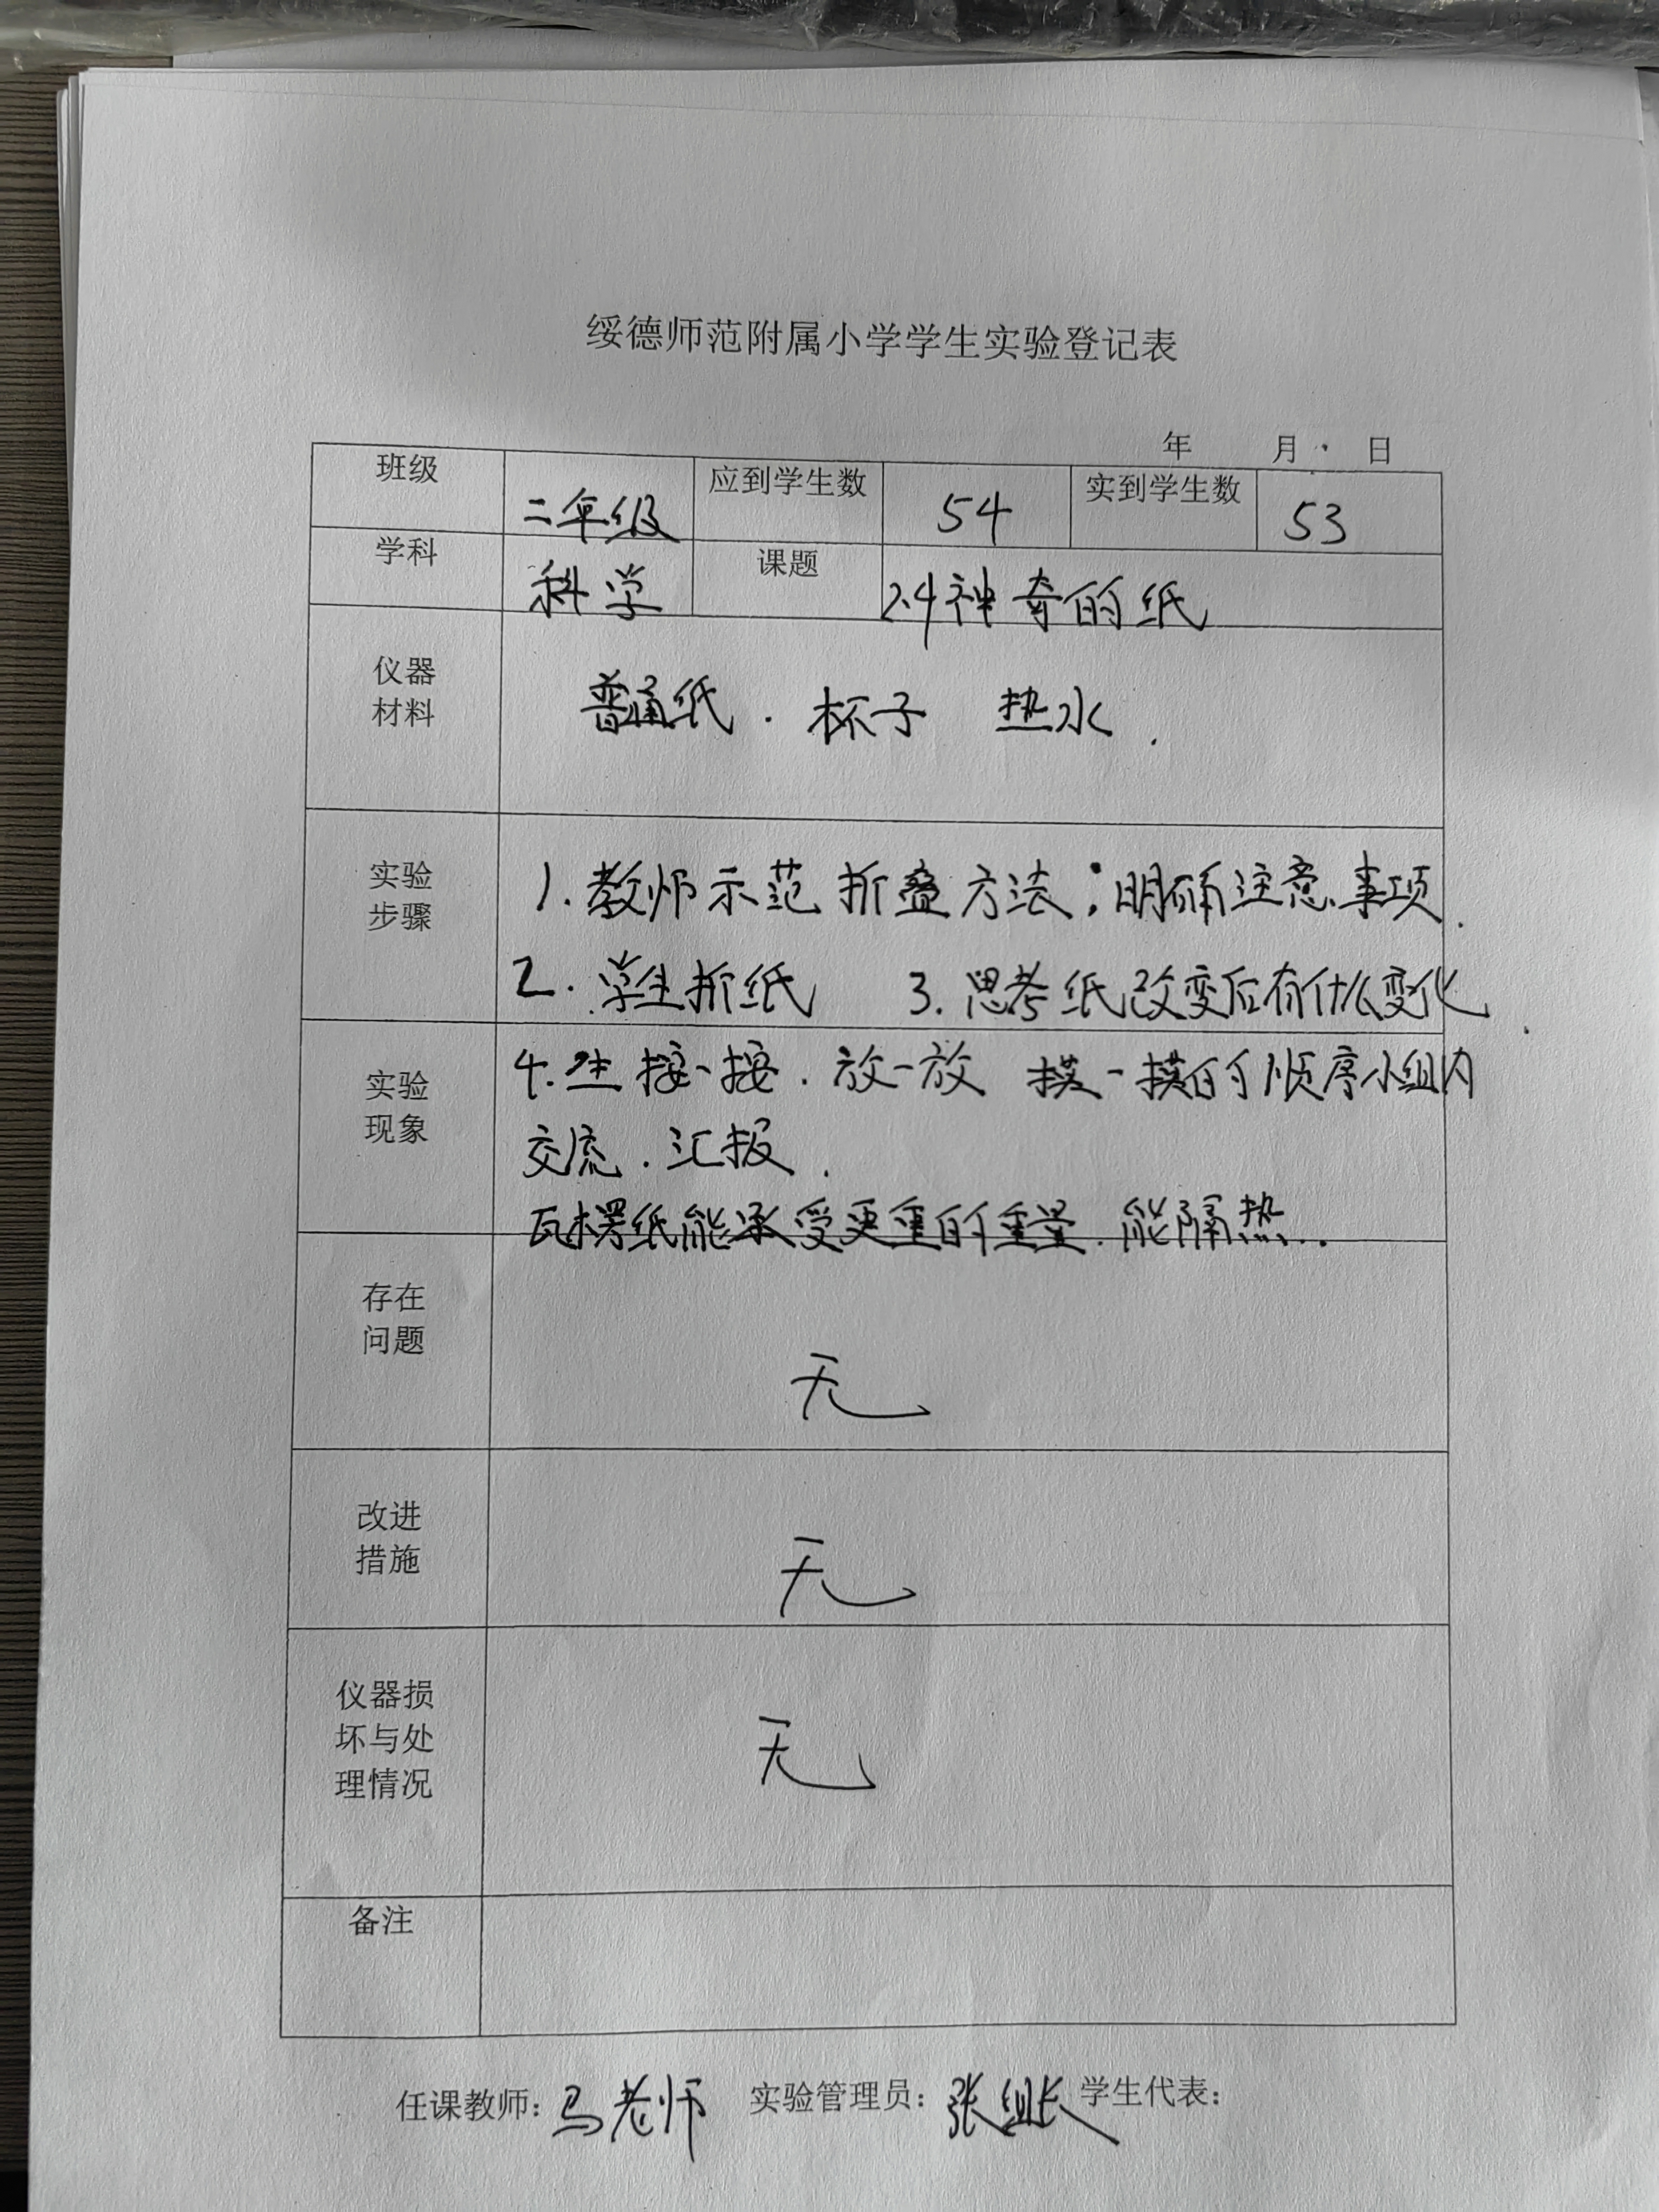 绥德师范附属小学学生实验登记表
年 月 日
班级 二年级 应到学生数 54 实到学生数 53
学科 科学 课题 2.4神奇的纸
仪器
材料
普通纸. 杯子 热水.
实验
步骤
1. 教师示范折叠方法;明确注意事项.
2. 学生折纸 3. 思考纸改变后有什么变化.
实验
现象
4. 生按一按. 放一放 摸一摸的顺序小组内
交流. 汇报.
瓦楞纸能承受更重的重量. 能隔热..
存在
问题
无
改进
措施
无
仪器损
坏与处
理情况
无
备注
任课教师:马老师 实验管理员:张组长 学生代表: